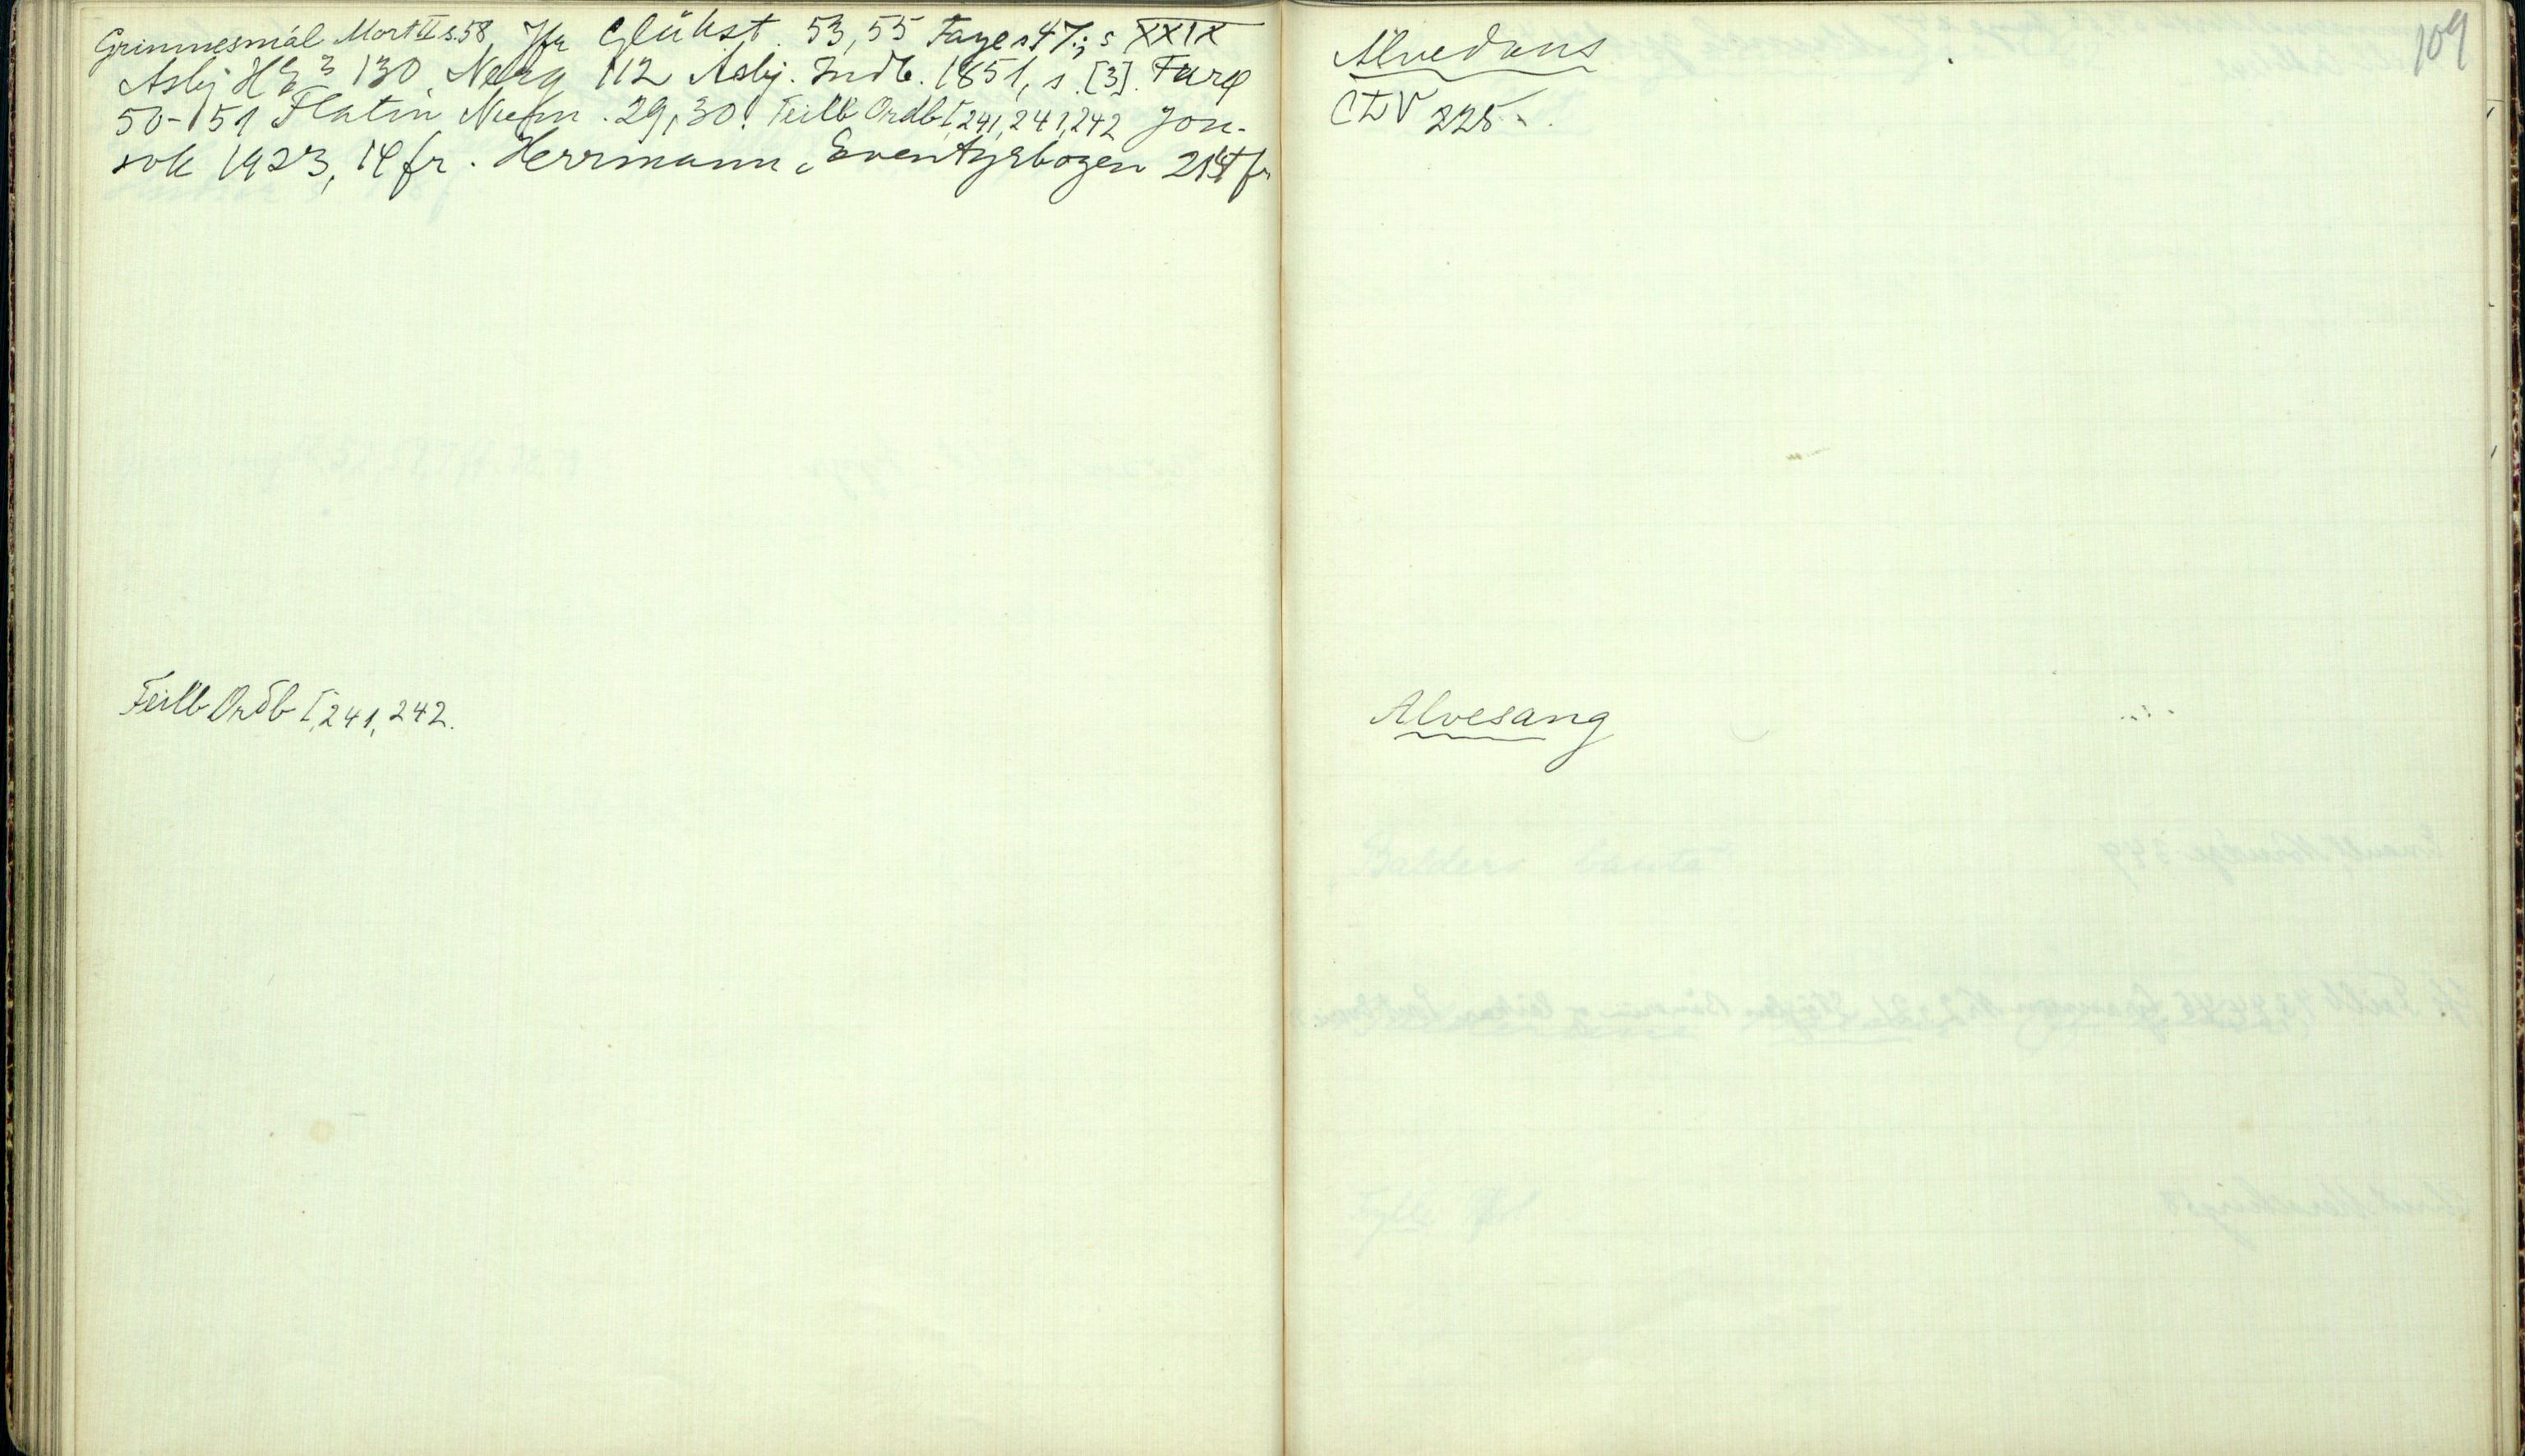 Grimnesmål Mort II s.58, Jfr Glükst. 53, 55 Faye s 47.; s XXIX
Asbj HE³ 130 Nerg 112 Asbj. Indb. 1851, s. [3].
50-51 Flatin Nufm. 29, 30. Feilb Ordb I, 241, 241, 242 Jon-
sok 1923, 14 fr. Herrmann, Eventyrbogen
Feilb Ordb I, 241, 242.
109
Alvedans
225
Alvesang